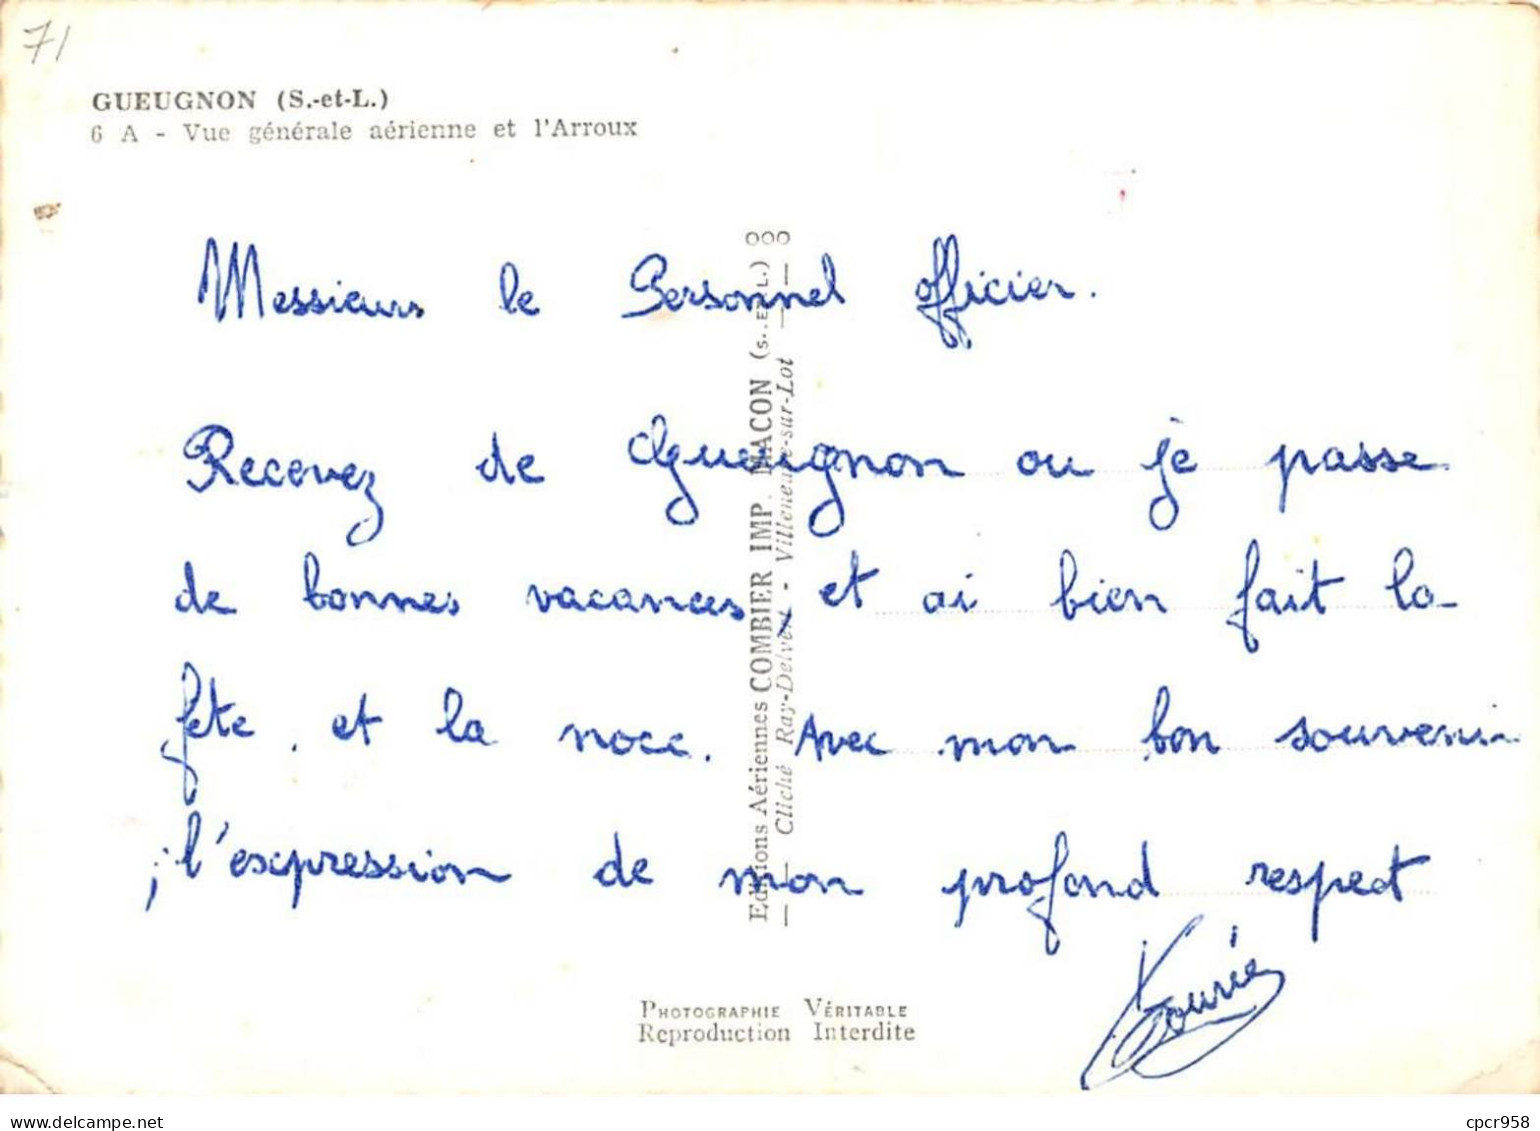 71
GUEUGNON (S.-et-L.)
6 A - Vue générale aérienne et l'Arroux
Messieurs le Personnel officier.
Recevez de Gueugnon ou je passe
de bonnes vacances, et ai bien fait la
fete, et la noce. Avec mon bon souvenir
; l'expression de mon profond respect
Editions Aériennes COMBIER IMP. MACON (S.-ET-L.) ooo
— Cliché Ray-Delvert - Villeneuve-sur-Lot —
PHOTOGRAPHIE VÉRITABLE
Reproduction Interdite
delcampe.net
cpcr958